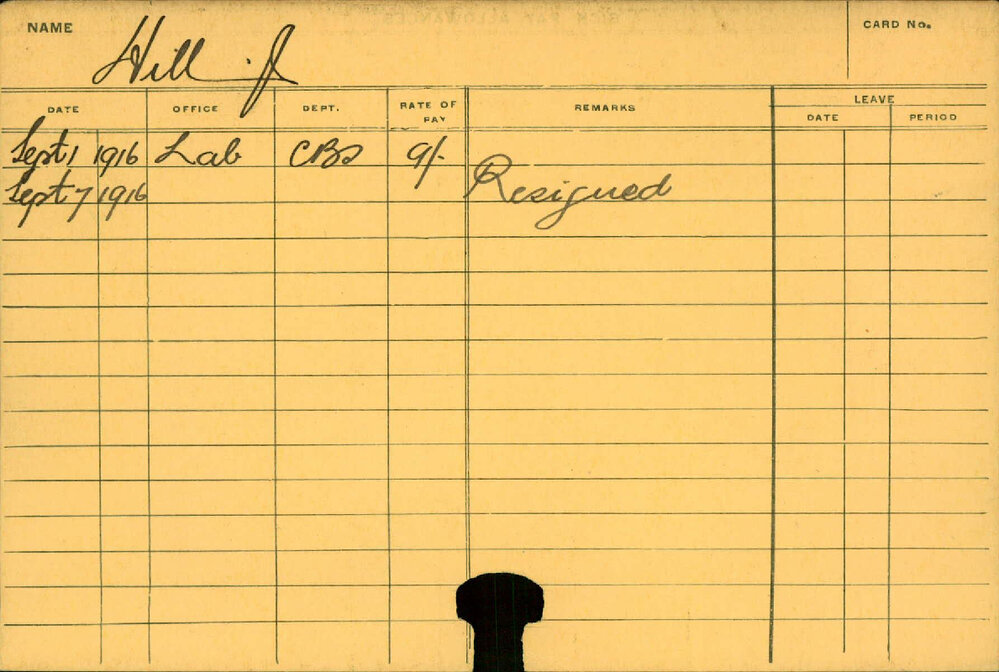 NAME
Hill J
CARD No.
DATE OFFICE DEPT. RATE OF PAY REMARKS LEAVE
DATE PERIOD
Sept 1 1916 Lab CBS 9/-
Sept 7 1916 Resigned